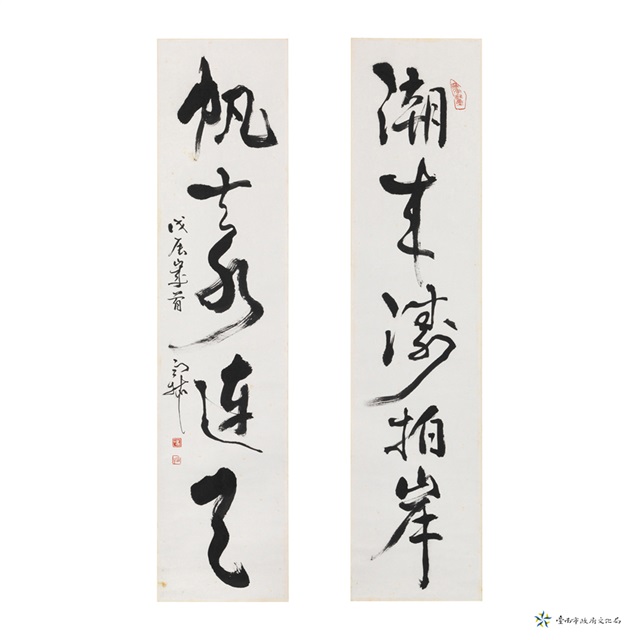 潮來濤拍岸
帆去水連天
戊辰歲首
臺南市政府文化局